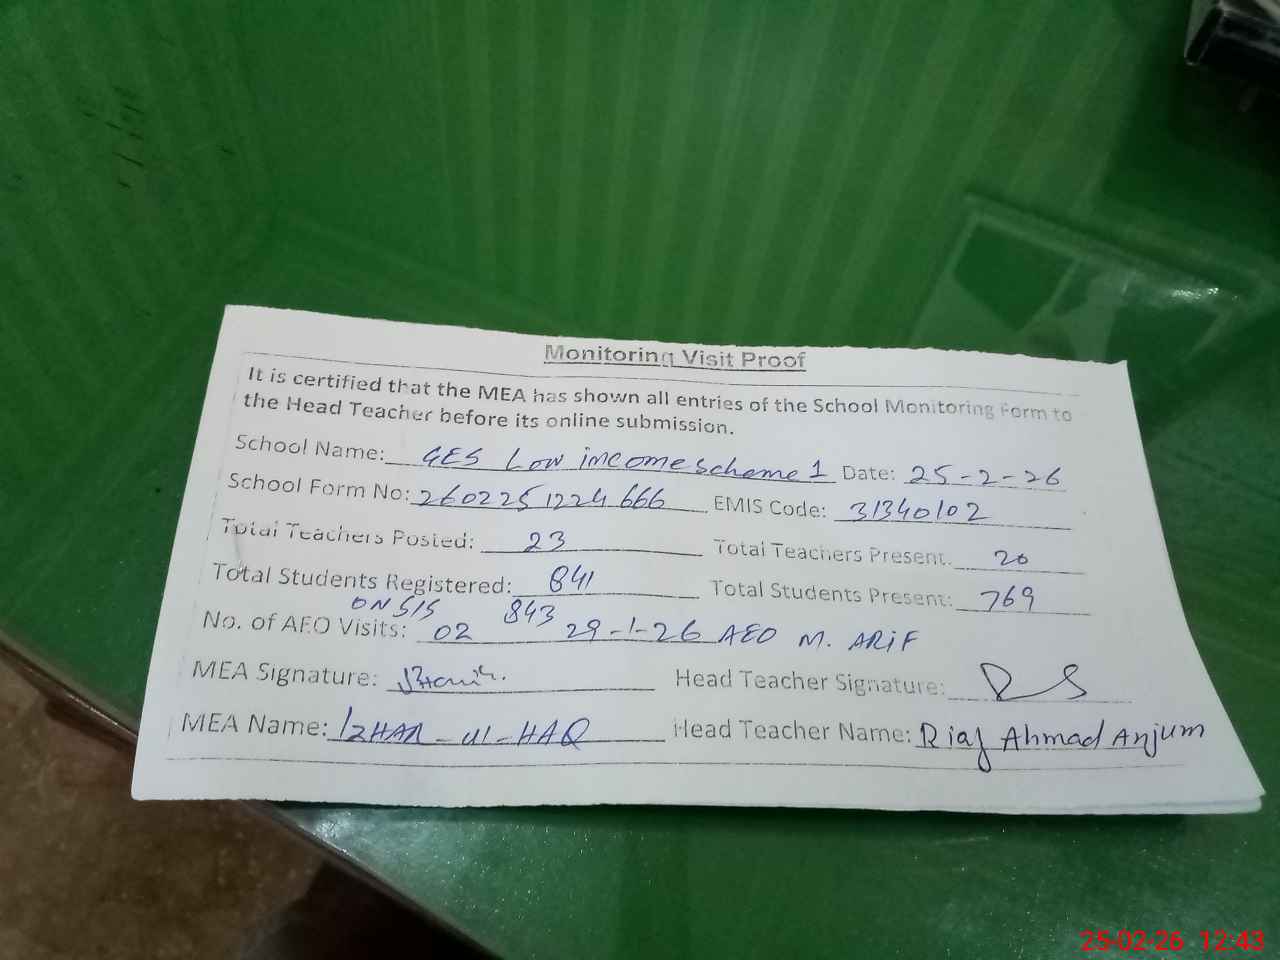 Monitoring Visit Proof
It is certified that the MEA has shown all entries of the School Monitoring Form to
the Head Teacher before its online submission.
School Name: GES Low income scheme 1 Date: 25-2-26
School Form No: 2602251224666 EMIS Code: 31340102
Total Teachers Posted: 23 Total Teachers Present: 20
Total Students Registered: 841 Total Students Present: 769
ON SIS 843
No. of AEO Visits: 02 29-1-26 AEO M. ARiF
MEA Signature: Head Teacher Signature:
MEA Name: IZHAR-Ul-HAQ Head Teacher Name: Riaz Ahmad Anjum
25-02-26 12:43